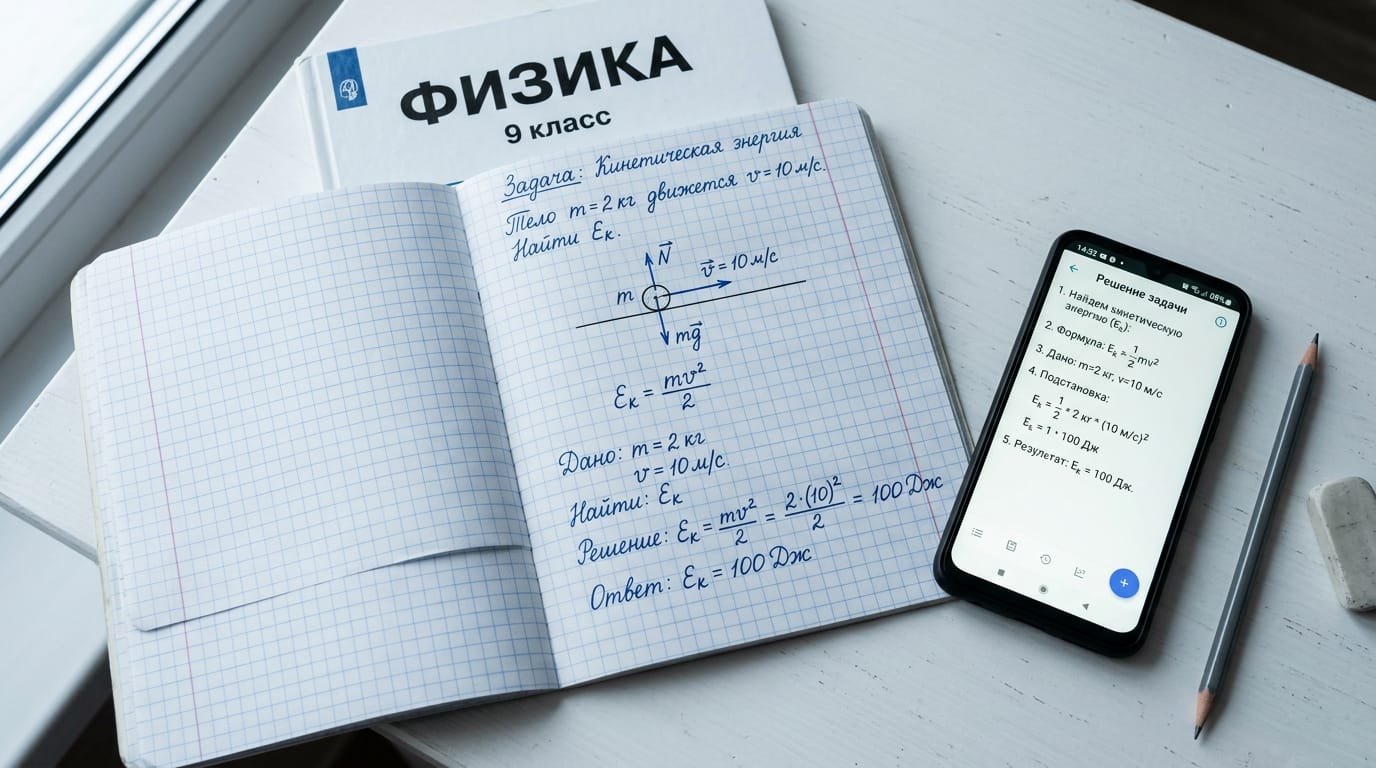 ФИЗИКА
9 класс
Задача: Кинетическая энергия
Тело m = 2 кг движется v = 10 м/с.
Найти Eк.
N⃗
v⃗ = 10 м/с
m
mg⃗
Eк = mv²/2
Дано: m = 2 кг
v = 10 м/с.
Найти: Eк
Решение: Eк = mv²/2 = 2·(10)²/2 = 100 Дж
Ответ: Eк = 100 Дж
14:32
Решение задачи
1. Найдем кинетическую
энергию (Eк):
2. Формула: Eк = 1/2 mv²
3. Дано: m=2 кг, v=10 м/с
4. Подстановка:
Eк = 1/2 * 2 кг * (10 м/с)²
Eк = 1 * 100 Дж
5. Результат: Eк = 100 Дж.